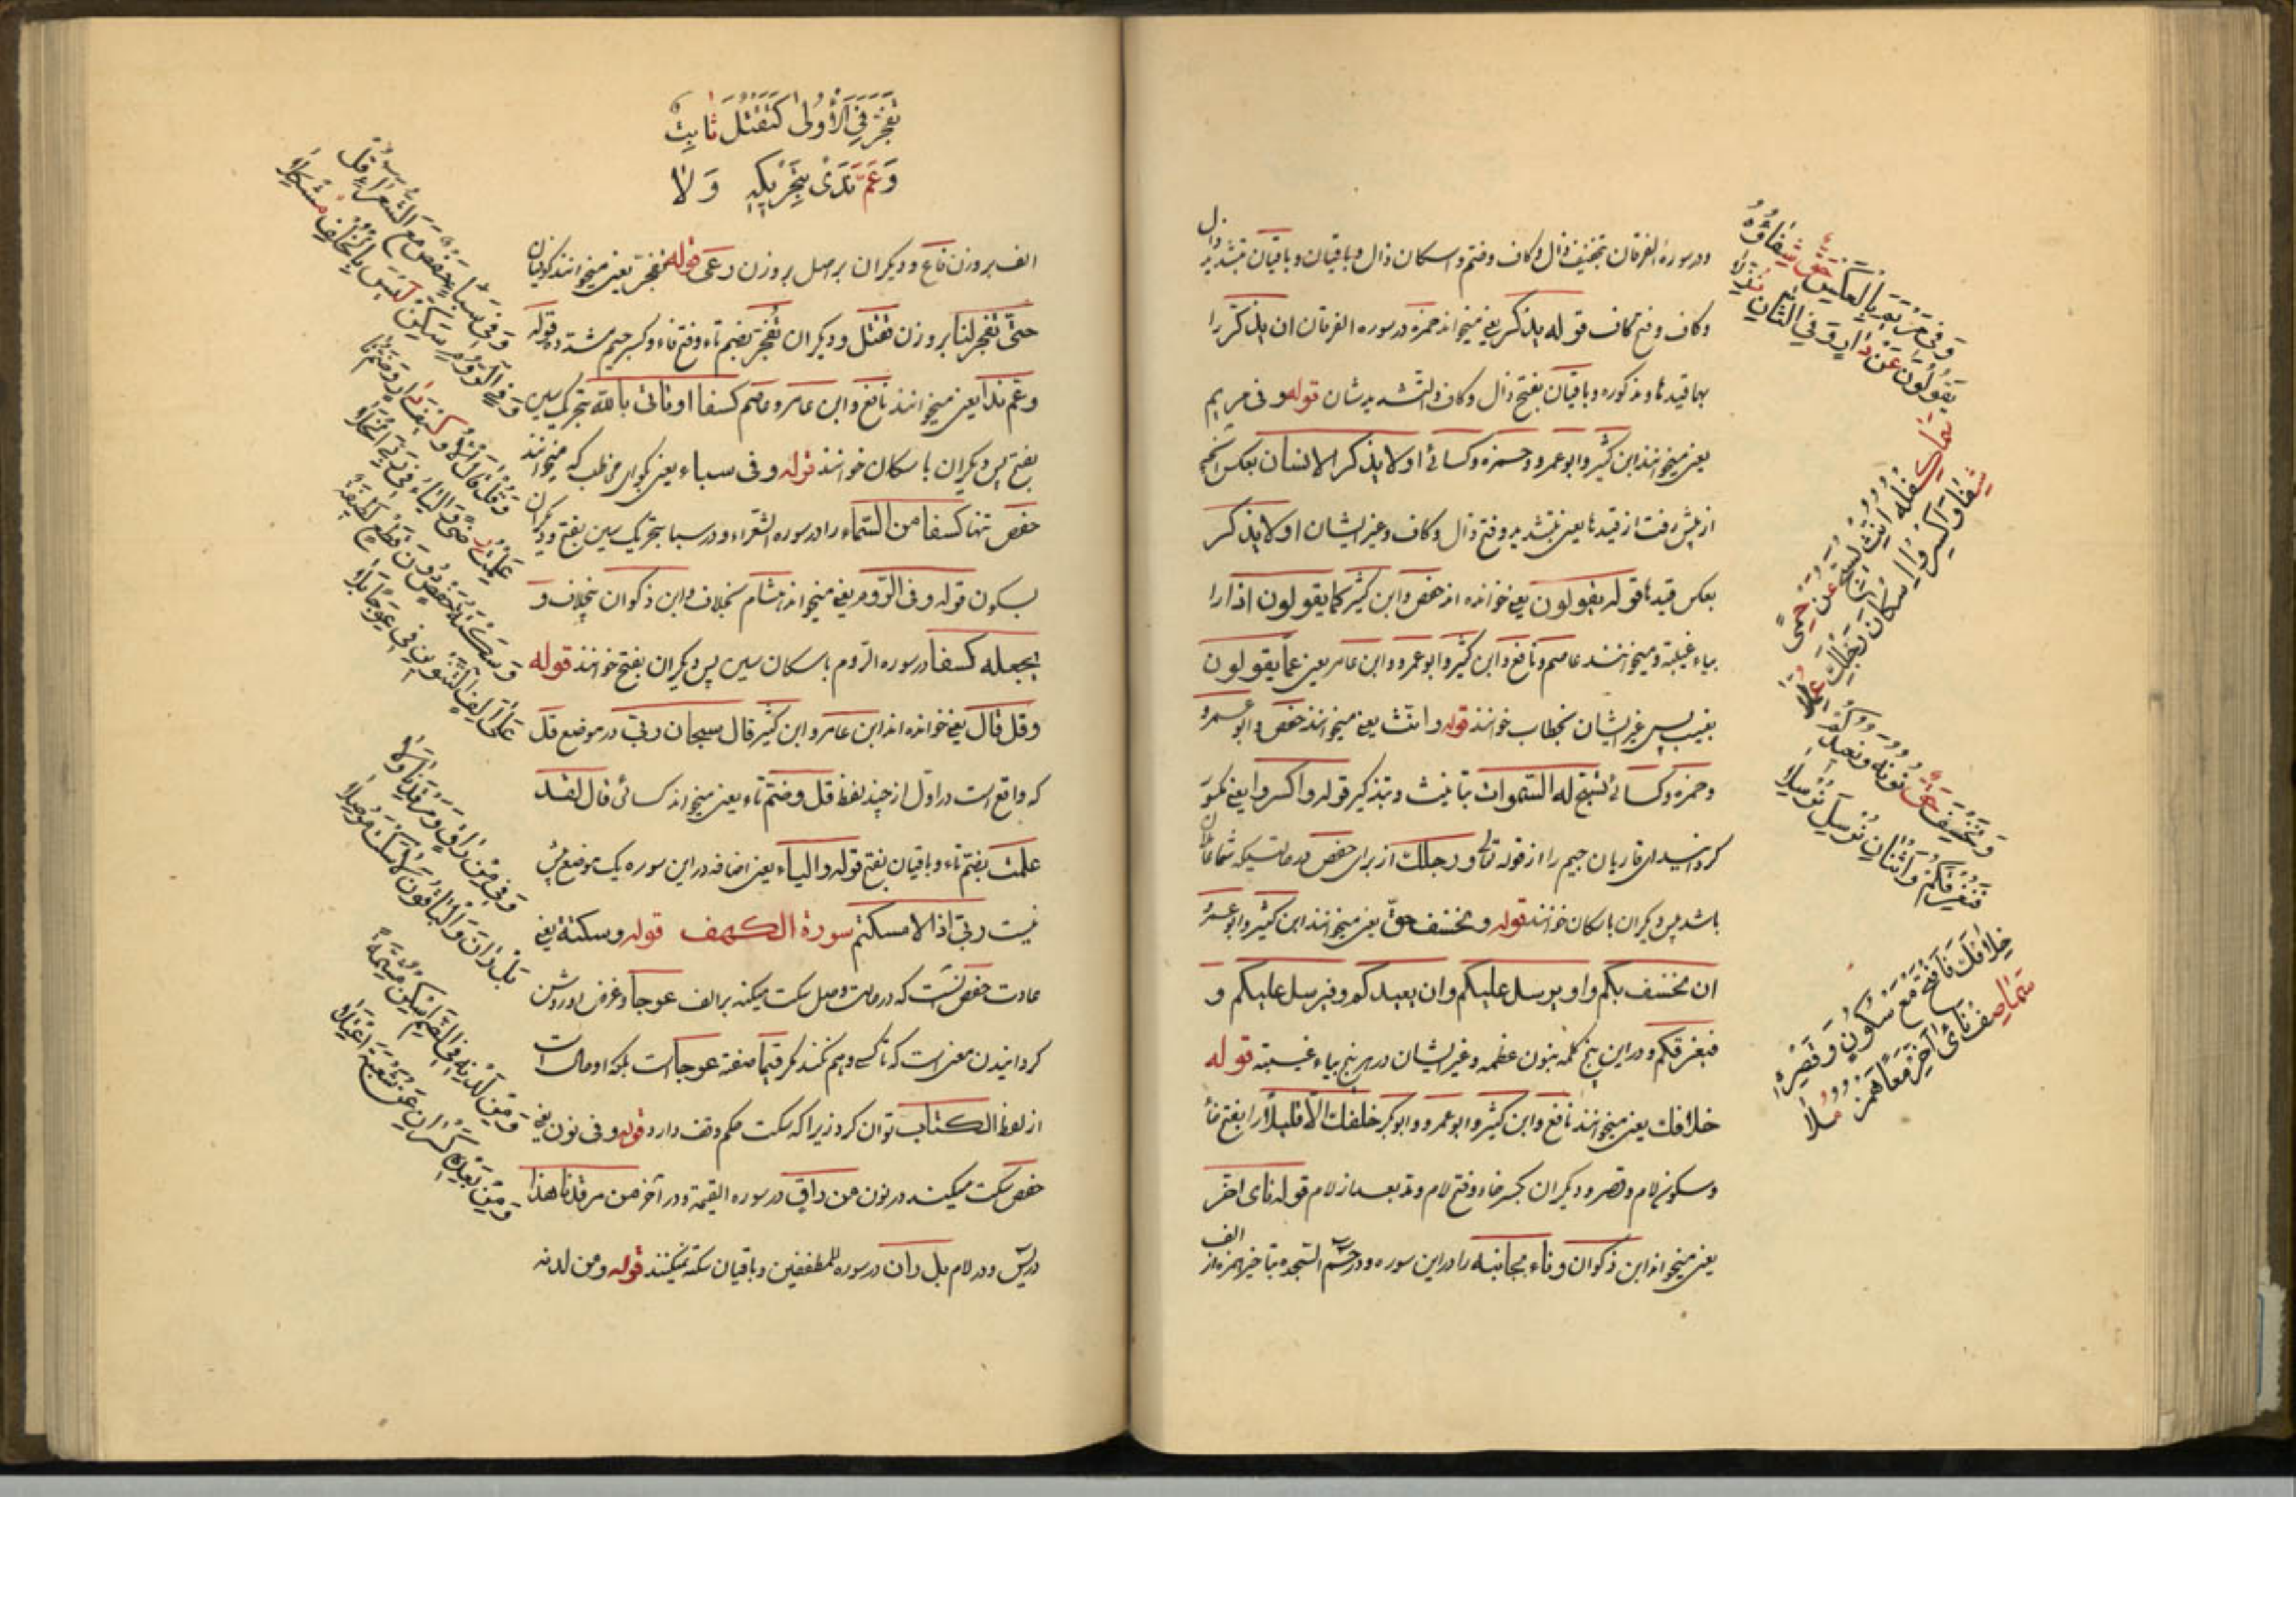 ودر سوره الفرقان بتخفیف ذال وکاف وضم واسکان ذال وباقیان وباقیان بتشدید ذال
وکاف وفتح کاف قوله یذکر یعنی میخواند حمزه در سوره الفرقان ان یذکر را
بهاقیدها ومذکوره وباقیان بفتح ذال وکاف والتشدیدشان قوله وفی مریم
یعنی میخوانند ابن کثیر وابوعمرو وحمزه وکسائی اولا یذکر الانسان بعکس انچه
از پیش رفت از قیدها یعنی بتشدید وفتح ذال وکاف وغیر ایشان اولا یذکر
بعکس قیدها قوله یقولون یعنی خوانده اند حفص وابن کثیر کما یقولون اذا را
بیاء غیبته ومیخوانند عاصم ونافع وابن کثیر وابوعمرو وابن عامر یعنی عما یقولون
بغیب پس غیر ایشان بخطاب خوانند قوله وانث یعنی میخوانند حفص وابو عمرو
وحمزه وکسائی تسبح له السموات بتانیث وبتذکیر قوله واکسروا یعنی مکسور
کردانید ای قاریان جیم را از قوله تعالی ورجلک از برای حفص در حالتیکه شما عاملان
باشد پس دیکران باسکان خوانند قوله ونخسف حق یعنی میخوانند ابن کثیر وابوعمرو
ان نخسف بکم واو نرسل علیکم وان نعیدکم وفنرسل علیکم و
فنغرقکم ودر این پنج کلمه بنون عظمه وغیر ایشان در هر پنج بیاء غیبته قوله
خلافک یعنی میخوانند نافع وابن کثیر وابوعمرو وابوبکر خلفک الا قلیلا را بفتح خا
وسکون لام وقصر ودیکران بکسر خاء وفتح لام ومد بعد از لام قوله نای اخر
یعنی میخواند ابن ذکوان وناء بجانبه را در این سوره ودر حم السجده بتاخیر همزه از الف
وفی مریم بالعکس حق شفاؤه
یقولون عن دار وفی الثان نزلا
سما کفله انث یسبح عن حمی
شفا واکسروا اسکان رجلک عملا
ونخسف حق نونه ونعیدکم
فنغرقکم واثنان نرسل نرسلا
خلافک فافتح مع سکون وقصره
سما صف نای اخر معا همزه ملا
تفجر فی الاولی کتقتل ثابت
وعم ندی بتحریکه ولا
الف بروزن ناع ودیکران براصل بروزن دعی قوله تفجر یعنی میخوانند کوفیان
حتی تفجر لنا بروزن تقتل ودیکران تفجر بضم تاء وفتح فاء وکسر جیم مشدده قوله
وعم ندا یعنی میخوانند نافع وابن عامر وعاصم کسفا او تاتی بالله بتحریک سین
بفتح پس دیکران باسکان خوانند قوله وفی سباء یعنی بکو ای مخاطب که میخوانند
حفص تنها کسفا من السماء را در سوره الشعراء ودر سبا بتحریک سین بفتح ودیکران
بسکون قوله وفی الروم یعنی میخواند هشام بخلاف وابن ذکوان بخلاف و
یجعله کسفا در سوره الروم باسکان سین پس دیکران بفتح خوانند قوله
وقل قال یعنی خوانده اند ابن عامر وابن کثیر قال سبحان ربی در موضع قل
که واقع است در اول از چند لفظ قل وضم تاء یعنی میخواند کسائی قال لقد
علمت بضم تاء وباقیان بفتح قوله والیاء یعنی اضافه در این سوره یک موضع پیش
نیست ربی اذا لامسکتم سورة الکهف قوله وسکتة یعنی
عادت حفص انست که در حالت وصل سکت میکند بر الف عوجا وغرض او روشن
کردانیدن معنی است که تا کسی وهم نکند مکر قیما صفة عوجا است بلکه او حال است
از لفظ الکتاب توان کرد زیرا که سکت حکم وقف دارد قوله وفی نون یعنی
حفص سکت میکند در نون من راق در سوره القیمة ودر اخر من مرقدنا هذا
در یس ودر لام بل ران در سوره للمطففین وباقیان سکته نمیکنند قوله ومن لدنه
وفی سبا حفص مع الشعراء قل
وفی الروم سکن لیس بالخلف مشکلا
وقل قال الاولی کیف دار وضم تا
علمت رضی والیاء فی ربی انجلا
وسکتة حفص دون قطع لطیفة
علی الف التنوین فی عوجا بلا
وفی نون من راق ومرقدنا ولا
م بل ران والباقون لا سکت موصلا
ومن لدنه فی الضم اسکن مشمه
ومن بعده کسران عن شعبة اعتلا